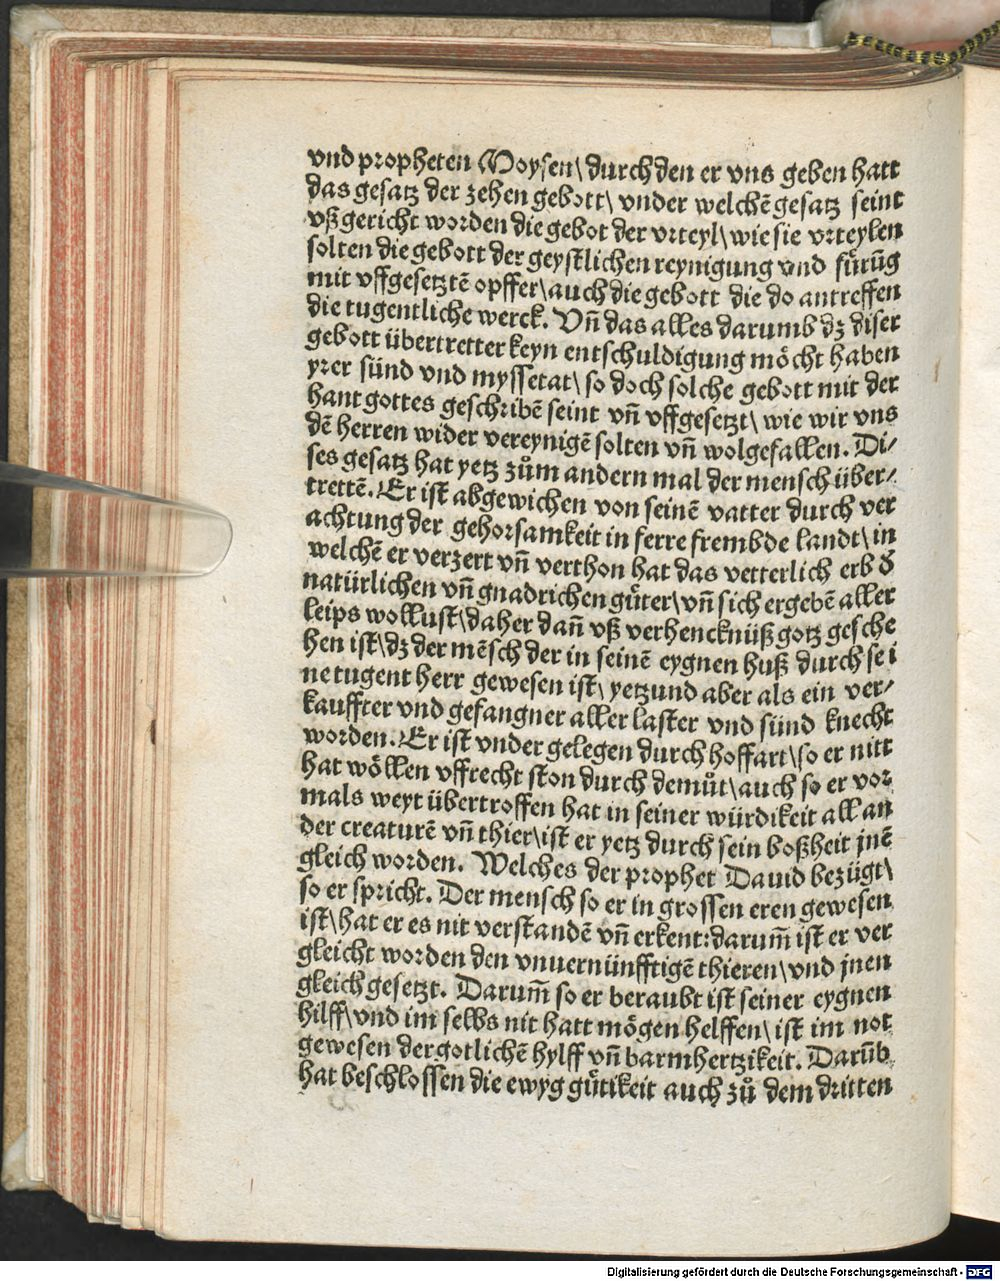 vnd propheten Moysen\ durch den er vns geben hatt
das gesatz der zehen gebott\ vnder welchē gesatz seint
vßgericht worden die gebot der vrteyl\ wie sie vrteylen
solten die gebott der geystlichen reynigung vnd fürūg
mit vffgesetztē opffer\ auch die gebott die do antreffen
die tugentliche werck. Vn̄ das alles darumb dz diser
gebott übertretter keyn entschuldigung möcht haben
yrer sünd vnd myssetat\ so doch solche gebott mit der
hant gottes geschribē seint vn̄ vffgesetzt\ wie wir vns
dē herren wider vereynigē solten vn̄ wolgefallen. Di/
ses gesatz hat yetz zům andern mal der mensch über/
trettē. Er ist abgewichen von seinē vatter durch ver
achtung der gehorsamkeit in ferre frembde landt\ in
welchē er verzert vn̄ verthon hat das vetterlich erb ď
natürlichen vn̄ gnadrichen gůter\ vn̄ sich ergebē aller
leips wollust\ daher dan̄ vß verhencknüß gotz gesche
hen ist\ dz der mēsch der in seinē eygnen huß durch sei
ne tugent herr gewesen ist\ yetzund aber als ein ver/
kauffter vnd gefangner aller laster vnd sünd knecht
worden. Er ist vnder gelegen durch hoffart\ so er nitt
hat wöllen vffrecht ston durch demůt\ auch so er vor
mals weyt übertroffen hat in seiner würdikeit all an
der creaturē vn̄ thier\ ist er yetz durch sein boßheit jnē
gleich worden. Welches der prophet Dauid bezügt\
so er spricht. Der mensch so er in grossen eren gewesen
ist\ hat er es nit verstandē vn̄ erkent: darum̄ ist er ver
gleicht worden den vnuernünfftigē thieren\ vnd jnen
gleich gesetzt. Darum̄ so er beraubt ist seiner eygnen
hilff\ vnd im selbs nit hatt mögen helffen\ ist im not
gewesen der gotlichē hylff vn̄ barmhertzikeit. Darūb
hat beschlossen die ewyg gütikeit auch zů dem dritten
Digitalisierung gefördert durch die Deutsche Forschungsgemeinschaft - DFG